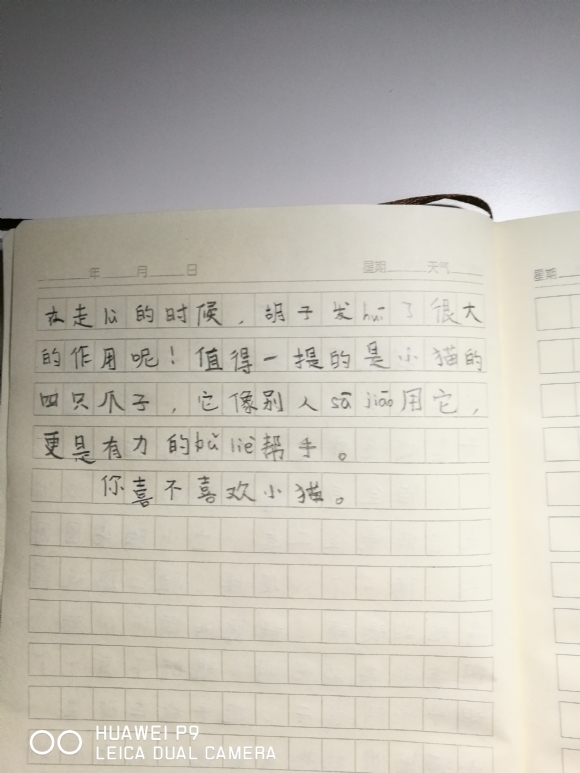 年 月 日 星期 天气
星期
在走lù的时候，胡子发huī了很大
的作用呢！值得一提的是小猫的
四只爪子，它像别人sā jiāo用它，
更是有力的bǔ liè帮手。
你喜不喜欢小猫。
HUAWEI P9
LEICA DUAL CAMERA